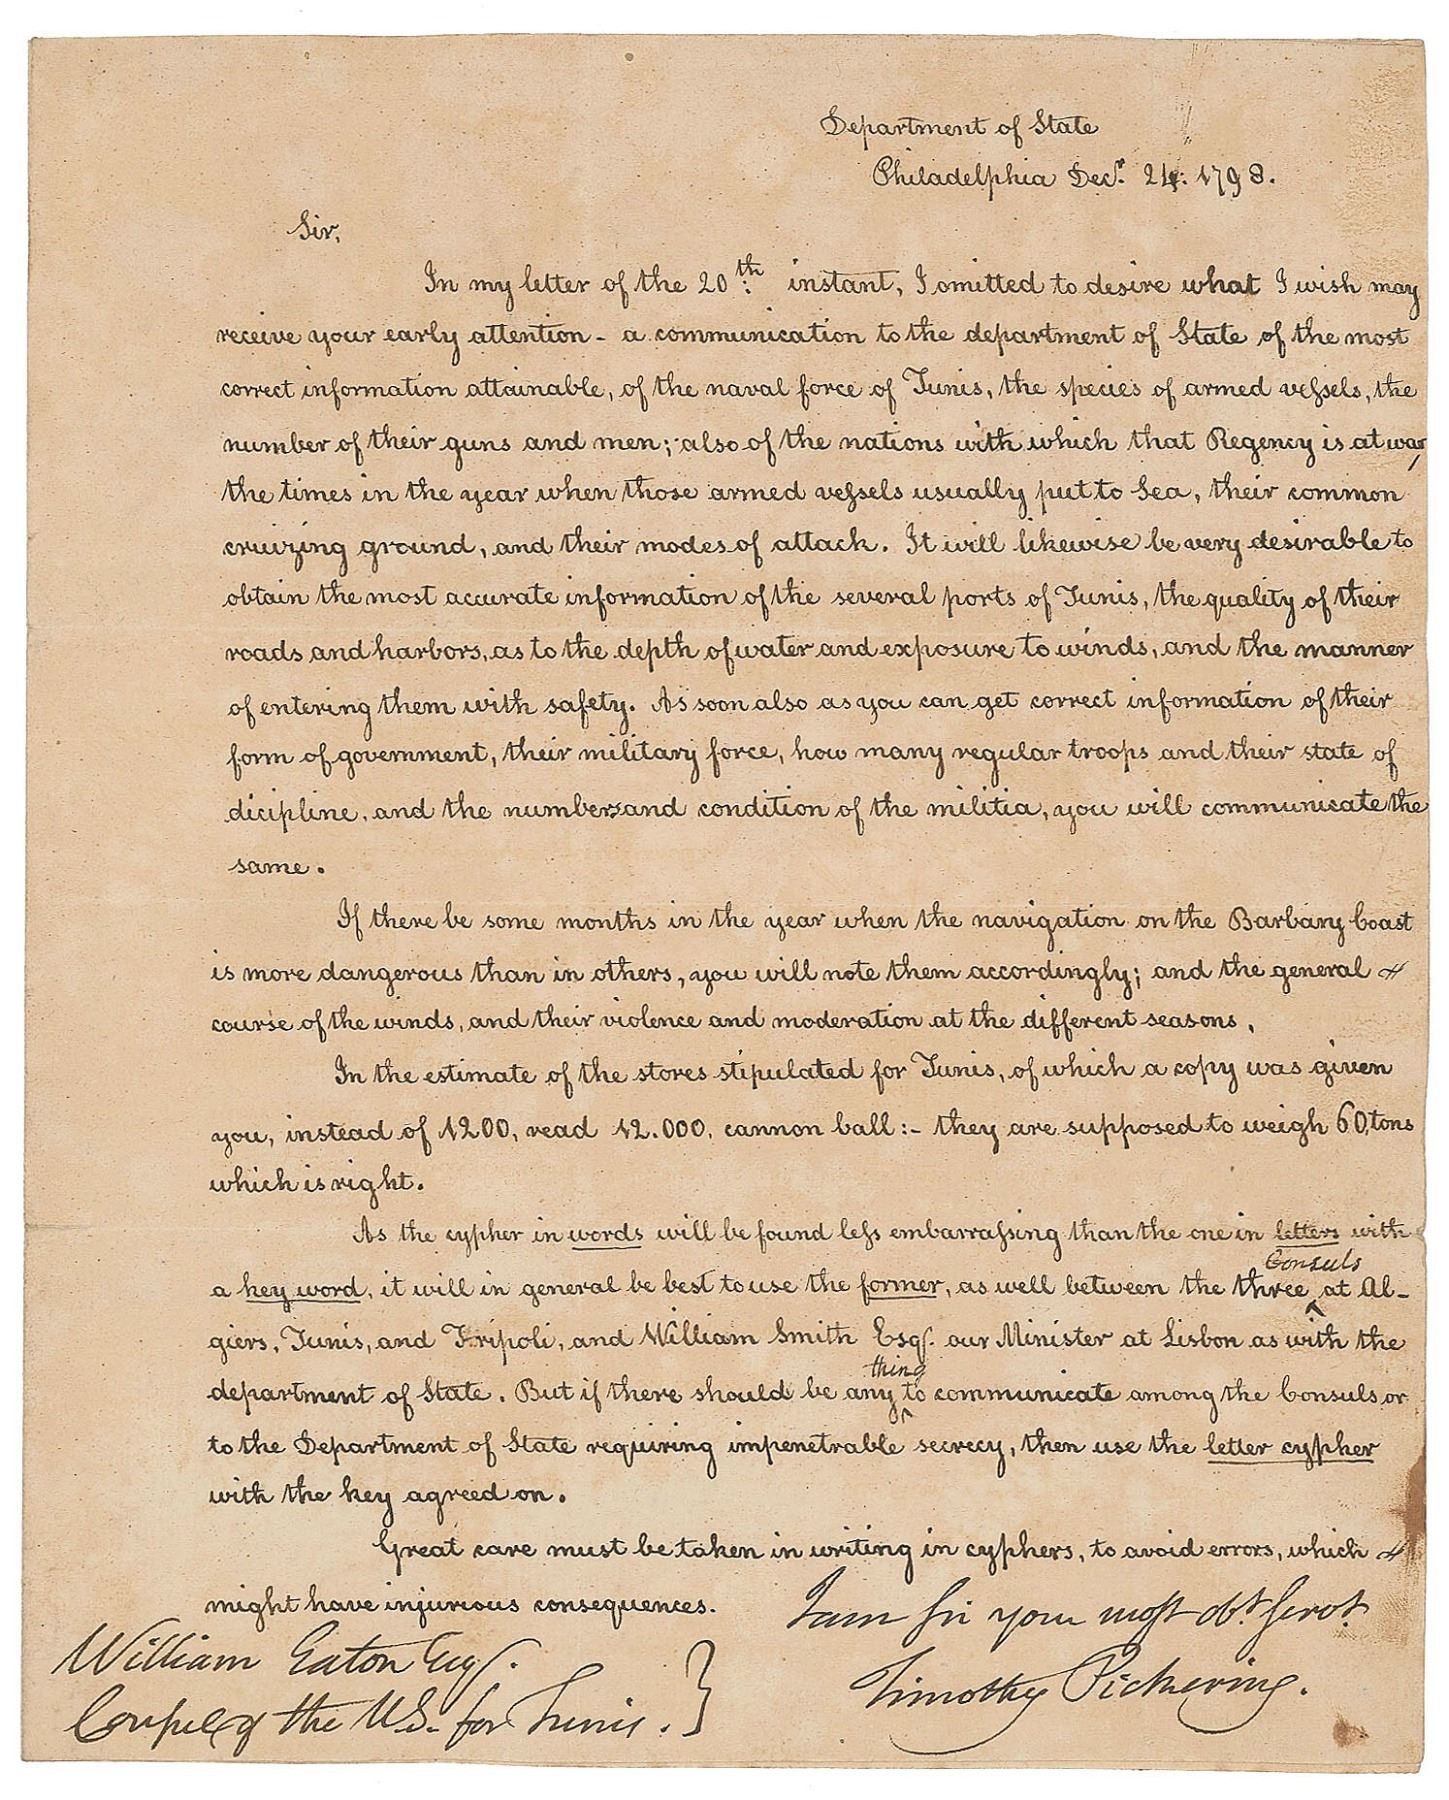 Department of State
Philadelphia Decr. 24. 1798.
Sir,
In my letter of the 20th. instant, I omitted to desire what I wish may
receive your early attention - a communication to the department of State of the most
correct information attainable, of the naval force of Tunis, the species of armed veſsels, the
number of their guns and men; also of the nations with which that Regency is at war,
the times in the year when those armed veſsels usually put to Sea, their common
cruizing ground, and their modes of attack. It will likewise be very desirable to
obtain the most accurate information of the several ports of Tunis, the quality of their
roads and harbors, as to the depth of water and exposure to winds, and the manner
of entering them with safety. As soon also as you can get correct information of their
form of government, their military force, how many regular troops and their state of
dicipline, and the numbers and condition of the militia, you will communicate the
same.
If there be some months in the year when the navigation on the Barbary Coast
is more dangerous than in others, you will note them accordingly; and the general
course of the winds, and their violence and moderation at the different seasons.
In the estimate of the stores stipulated for Tunis, of which a copy was given
you, instead of 1200, read 12.000, cannon ball:- they are supposed to weigh 60, tons
which is right.
As the cypher in words will be found leſs embarraſsing than the one in letters with
a key word, it will in general be best to use the former, as well between the three ‸Consuls at Al-
giers, Tunis, and Tripoli, and William Smith Esqr. our Minister at Lisbon as with the
department of State. But if there should be any ‸thing to communicate among the Consuls or
to the Department of State requiring impenetrable secrecy, then use the letter cypher
with the key agreed on.
Great care must be taken in writing in cyphers, to avoid errors, which
might have injurious consequences.
I am Sir your moſt obt. Servt.
William Eaton Esqr.
Timothy Pickering.
Consul of the U.S. for Tunis.